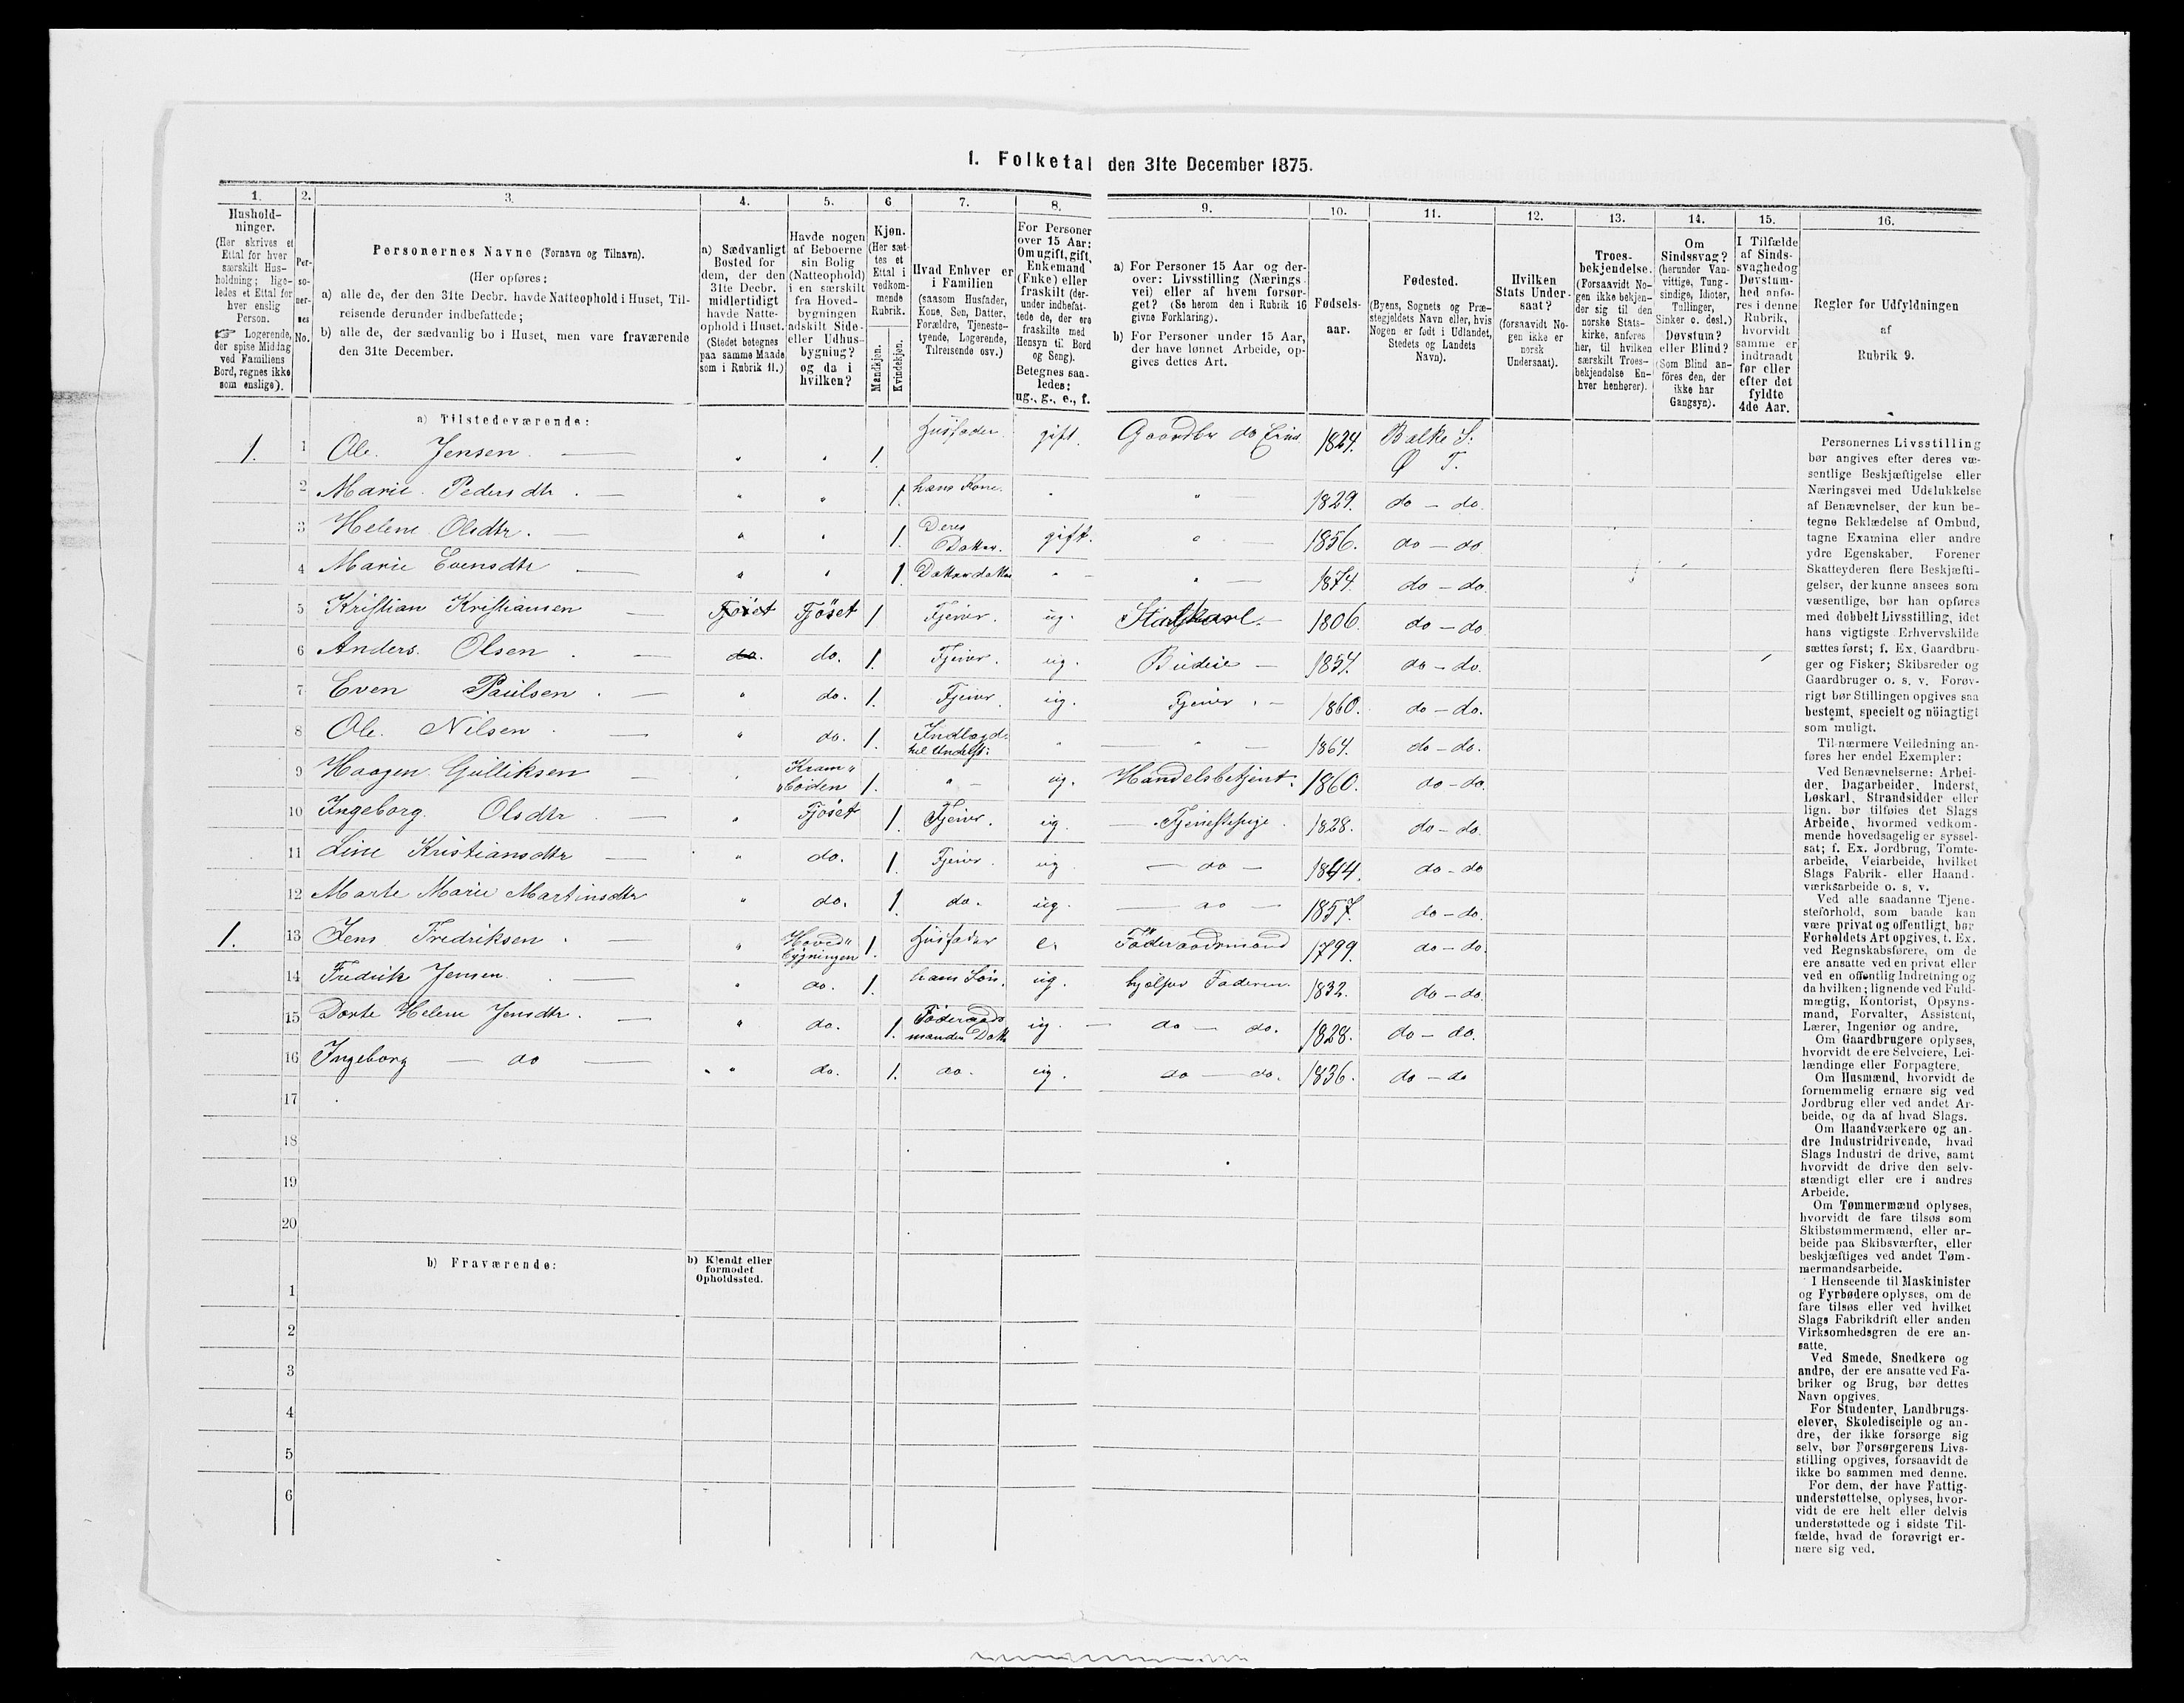 1. Folketal den 31te December 1875.
1. 2. 3. 4. 5. 6 7. 8. 9. 10. 11. 12. 13. 14. 15. 16.
Hushold-
ninger.
(Her skrives et
Ettal for hver
særskilt Hus-
holdning; lige-
ledes et Ettal for
hver enslig
Person.
☞ Logerende,
der spise Middag
ved Familiens
Bord, regnes ikke
som enslige).
Per-
so-
ner-
nes
No.
Personernes Navne (Fornavn og Tilnavn).
(Her opføres:
a) alle de, der den 31te Decbr. havde Natteophold i Huset, Til-
reisende derunder indbefattede;
b) alle de, der sædvanlig bo i Huset, men vare fraværende
den 31te December.
a) Sædvanligt
Bosted for
dem, der den
31te Decbr.
midlertidigt
havde Natte-
ophold i Huset.
(Stedet betegnes
paa samme Maade
som i Rubrik 11.)
Havde nogen
af Beboerne
sin Bolig
(Natteophold)
i en særskilt
fra Hoved-
bygningen
adskilt Side-
eller Udhus-
bygning?
og da i
hvilken?
Kjøn.
(Her sæt-
tes et
Ettal i
vedkom-
mende
Rubrik.
Mandkjøn.
Kvindekjøn.
Hvad Enhver er
i Familien
(saasom Husfader,
Kone, Søn, Datter,
Forældre, Tjeneste-
tyende, Logerende,
Tilreisende osv.)
For Personer
over 15 Aar:
Om ugift, gift,
Enkemand
(Enke) eller
fraskilt (der-
under indbefat-
tede de, der ere
fraskilte med
Hensyn til Bord
og Seng).
Betegnes saa-
ledes:
ug., g., e., f.
a) For Personer 15 Aar og der-
over: Livsstilling (Nærings-
vei) eller af hvem forsør-
get? (Se herom den i Rubrik 16
givne Forklaring).
b) For Personer under 15 Aar,
der have lønnet Arbeide, op-
gives dettes Art.
Fødsels-
aar.
Fødested.
(Byens, Sognets og Præ-
stegjeldets Navn eller, hvis
Nogen er født i Udlandet,
Stedets og Landets
Navn).
Hvilken
Stats Under-
saat?
(forsaavidt No-
gen ikke er
norsk
Undersaat).
Troes-
bekjendelse.
(Forsaavidt No-
gen ikke bekjen-
der sig til den
norske Stats-
kirke, anføres
her, til hvilken
særskilt Troes-
bekjendelse En-
hver henhører).
Om
Sindssvag?
(herunder Van-
vittige, Tung-
sindige, Idioter,
Tullinger,
Sinker o. desl.)
Døvstum?
eller Blind?
(Som Blind an-
føres den, der
ikke har
Gangsyn).
I Tilfælde
af Sinds-
svaghed og
Døvstum-
hed anfø-
res i denne
Rubrik,
hvorvidt
samme er
indtraadt
før eller
efter det
fyldte
4de Aar.
Regler for Udfyldningen
af
Rubrik 9.
a) Tilstedeværende:
1. 1 Ole Jensen " " 1. Husfader gift. Gaardbr 1824. Balke S. Ø T.
2 Marie Pedersdtr. " " 1. hans Kone. " " 1829. do - do.
3 Helene Olsdtr. " " 1. Deres Datter. gift. " 1856. do - do
4 Marie Evensdtr " " 1. " " 1874. do - do.
5 Kristian Kristiansen Fjöset Fjöset 1 Tjener. ug. 1806. do - do
6 Anders Olsen do. do. 1. Tjener. ug. Budeie 1854. do - do.
7 Even Paulsen " do. 1. Tjener. ug. Tjener 1860. do - do.
8 Ole Nilsen " do. 1. Indlagd. " " 1864. do - do.
9 Haagen Gulliksen " Kram" boden 1. " ug. Handelsbetjent. 1860. do - do.
10 Ingeborg Olsdtr " Fjöset 1. Tjener. ug. Tjenestepige. 1828. do - do.
11 Line Kristiansdtr " do. 1. Tjener. ug do 1844. do - do
12 Marte Marie Martinsdtr " do. 1. do. ug. do 1857. do - do.
1. 13 Jens Fredriksen " Hoved" bygningen 1. Husfader e. Föderaadsmand 1799. do - do.
14 Fredrik Jensen " do. 1. hans Sön. ug. hjelper Faderen. 1832. do - do.
15 Dorte Helene Jensdtr. " do. 1. Föderaads mandens Datt. ug. do - do. 1828. do - do.
16 Ingeborg do " do. 1. do. ug. do - do. 1836. do - do
17
18
19
20
b) Fraværende:
b) Kjendt eller
formodet
Opholdssted.
1
2
3
4
5
6
Personernes Livsstilling
bør angives efter deres væ-
sentlige Beskjæftigelse eller
Næringsvei med Udelukkelse
af Benævnelser, der kun be-
tegne Beklædelse af Ombud,
tagne Examina eller andre
ydre Egenskaber. Forener
Skatteyderen flere Beskjæfti-
gelser, der kunne ansees som
væsentlige, bør han opføres
med dobbelt Livsstilling, idet
hans vigtigste Erhvervskilde
sættes først; f. Ex. Gaardbru-
ger og Fisker; Skibsreder og
Gaardbruger o. s. v. Forøv-
rigt bør Stillingen opgives saa
bestemt, specielt og nöiagtigt
som muligt.
Til nærmere Veiledning an-
føres her endel Exempler:
Ved Benævnelserne: Arbei-
der, Dagarbeider, Inderst,
Løskarl, Strandsidder eller
lign. bør tilføies det Slags
Arbeide, hvormed vedkom-
mende hovedsagelig er syssel-
sat; f. Ex. Jordbrug, Tomte-
arbeide, Veiarbeide, hvilket
Slags Fabrik- eller Haand-
værksarbeide o. s. v.
Ved alle saadanne Tjene-
steforhold, som baade kan
være privat og offentligt, bør
Forholdets Art opgives, t. Ex.
ved Regnskabsførere, om de
ere ansatte ved en privat eller
ved en offentlig Indretning og
da hvilken; lignende ved Fuld-
mægtig, Kontorist, Opsyns-
mand, Forvalter, Assistent,
Lærer, Ingeniør og andre.
Om Gaardbrugere oplyses,
hvorvidt de ere Selveiere, Lei-
lændinge eller Forpagtere.
Om Husmænd, hvorvidt de
fornemmelig ernære sig ved
Jordbrug eller ved andet Ar-
beide, og da af hvad Slags.
Om Haandværkere og an-
dre Industridrivende, hvad
Slags Industri de drive, samt
hvorvidt de drive den selv-
stændigt eller ere i andres
Arbeide.
Om Tømmermænd oplyses,
hvorvidt de fare tilsøs som
Skibstømmermænd, eller ar-
beide paa Skibsværfter, eller
beskjæftiges ved andet Tøm-
mermandsarbeide.
I Henseende til Maskinister
og Fyrbødere oplyses, om de
fare tilsøs eller ved hvilket
Slags Fabrikdrift eller anden
Virksomhedsgren de ere an-
satte.
Ved Smede, Snedkere og
andre, der ere ansatte ved Fa-
briker og Brug, bør dettes
Navn opgives.
For Studenter, Landbrugs-
elever, Skoledisciple og an-
dre, der ikke forsørge sig
selv, bør Forsørgerens Livs-
stilling opgives, forsaavidt de
ikke bo sammen med denne.
For dem, der have Fattig-
understøttelse, oplyses, hvor-
vidt de ere helt eller delvis
understøttede og i sidste Til-
fælde, hvad de forøvrigt er-
nære sig ved.